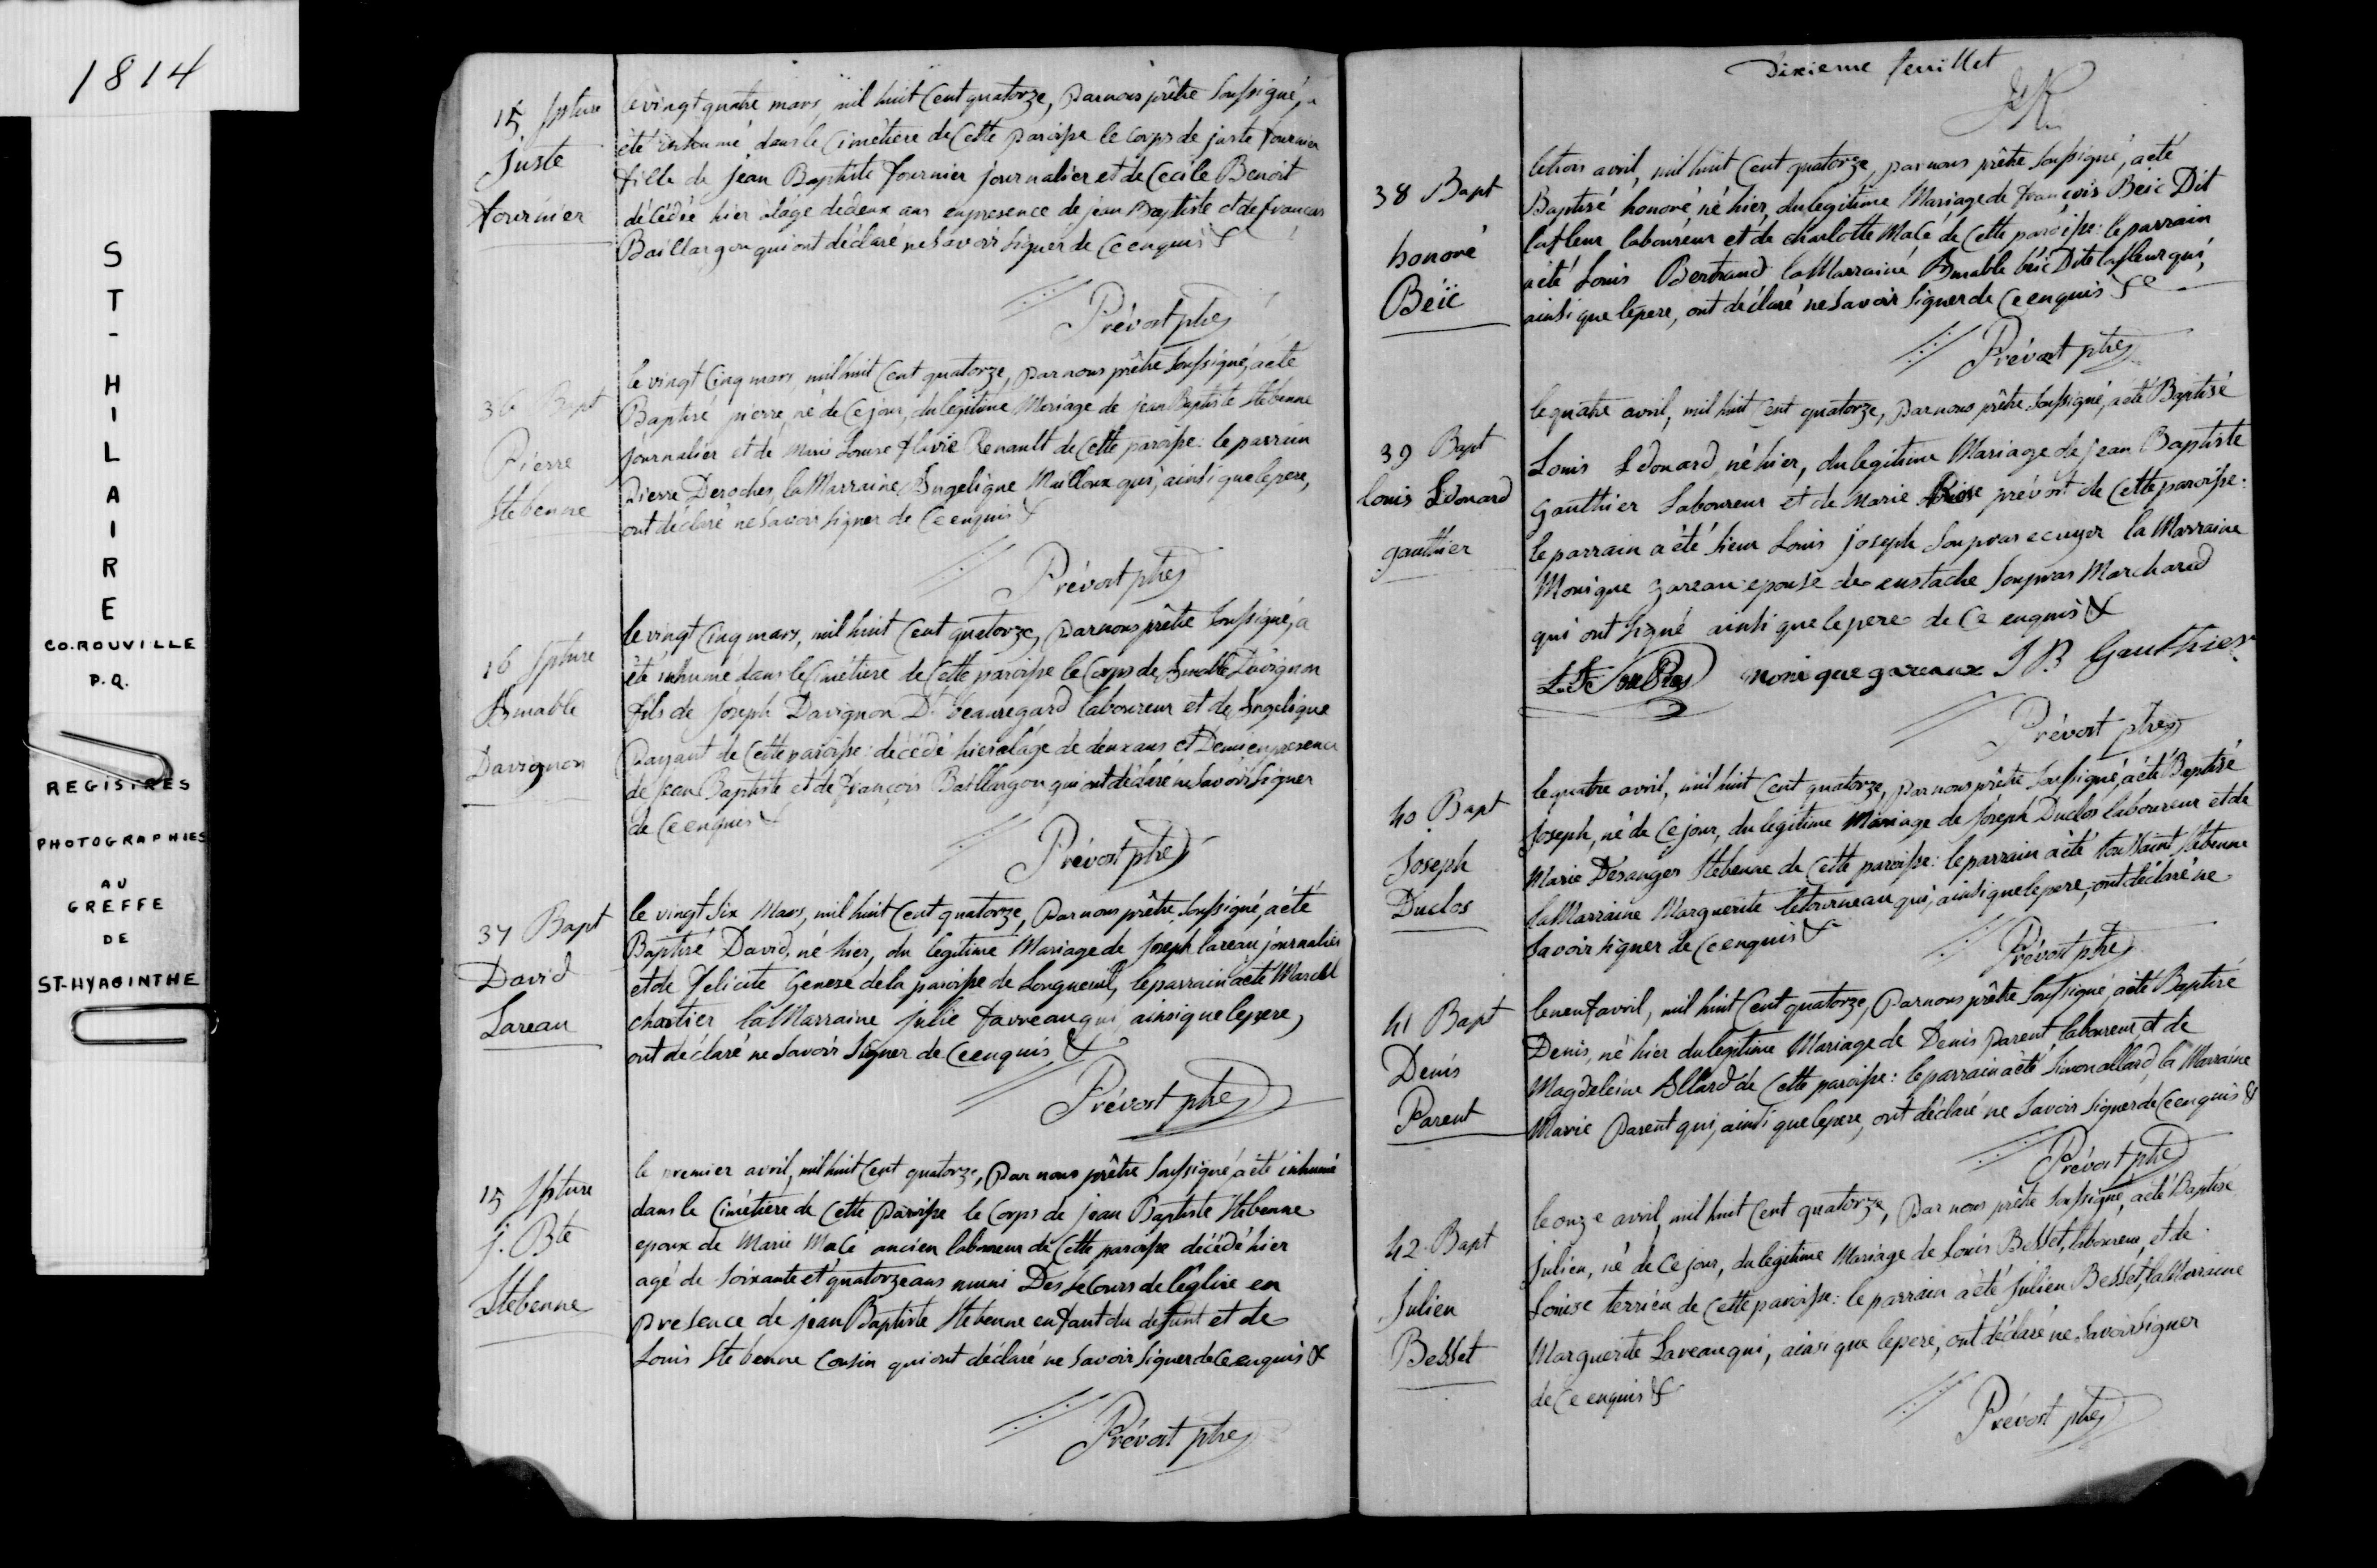 1814
ST-HILAIRE
CO. ROUVILLE
P.Q.
REGISTRES
PHOTOGRAPHIES
AU
GREFFE
DE
ST-HYACINTHE
15 Spture
Juste
fournier
le vingt quatre mars, mil huit Cent quatorze, par nous prêtre Soussigné, a
été inhumé dans le Cimetiere de Cette paroisse le Corps de juste fournier
fille de jean Baptiste fournier journalier et de Cecile Benoit
décédée hier a l'age de deux ans en presence de jean Baptiste et de francois
Baillargon qui ont déclaré ne Savoir Signer de Ce enquis &
Prévost ptre
36 Bapt
Pierre
Stebenne
le vingt Cinq mars, mil huit Cent quatorze, par nous prêtre Soussigné, a été
Baptisé pierre, né de Ce jour, du legitime Mariage de jean Baptiste Stebenne
journalier et de Marie Louise flavie Renault de Cette paroisse : le parrain
Pierre Deroches, la Marraine Angelique Mailloux qui, ainsi que le pere,
ont déclaré ne Savoir Signer de Ce enquis &
Prévost ptre
16 Spture
Amable
Davignon
le vingt Cinq mars, mil huit Cent quatorze, par nous prêtre Soussigné, a
été inhumé dans le Cimetiere de Cette paroisse le Corps de Amable Davignon
fils de joseph Davignon D. beauregard laboureur et de Angelique
Payant de Cette paroisse : décédé hier a l'age de deux ans et Demi en presence
de jean Baptiste et de françois Baillargon qui ont déclaré ne Savoir Signer
de Ce enquis &
Prévost ptre
37 Bapt
David
Lareau
le vingt Six Mars, mil huit Cent quatorze, par nous prêtre Soussigné, a été
Baptisé David, né hier, du legitime Mariage de joseph lareau journalier
et de felicite Genese de la paroisse de Longueuil, le parrain a été Marcel
chartier la Marraine julie favreau qui, ainsi que le pere,
ont déclaré ne Savoir Signer de Ce enquis &
Prévost ptre
15 Spture
j. Bte
Stebenne
le premier avril, mil huit Cent quatorze, par nous prêtre Soussigné a été inhumé
dans le Cimétiere de Cette paroisse le Corps de jean Baptiste Stebenne
epoux de Marie Macé ancien laboureur de Cette paroisse décédé hier
agé de Soixante et quatorze ans muni Des Secours de l'église en
presence de jean Baptiste Stebenne enfant du defunt et de
Louis Stebenne Cousin qui ont déclaré ne Savoir Signer de Ce enquis &
Prévost ptre
Dixieme feuillet
38 Bapt
honoré
Béïc
le trois avril, mil huit Cent quatorze, par nous prêtre Soussigné, a été
Baptisé honoré, né hier, du legitime Mariage de françois Béic Dit
lafleur laboureur et de charlotte Macé de Cette paroisse : le parrain
a été Louis Bertrand la Marraine Amable béic Dite lafleur qui,
ainsi que le pere, ont déclaré ne Savoir Signer de Ce enquis &
Prévost ptre
39 Bapt
louis Edouard
gauthier
le quatre avril, mil huit Cent quatorze, par nous prêtre Soussigné, a été Baptisé
Louis Edouard, né hier, du legitime Mariage de jean Baptiste
Gauthier Laboureur et de Marie prévost de Cette paroisse :
le parrain a été Sieur Louis joseph Soupras ecuyer la Marraine
Monique gareau epouse de eustache Soupras Marchand
qui ont Signé ainsi que le pere de Ce enquis &
monique gareaux J B Gauthier
Prévost ptre
40 Bapt
Joseph
Duclos
le quatre avril, mil huit Cent quatorze, par nous prêtre Soussigné, a été Baptisé
Joseph, né de Ce jour, du legitime Mariage de Joseph Duclos laboureur et de
Marie Desanges Stebenne de Cette paroisse : le parrain a été toussaint Stebenne
la Marraine Marguerite letourneau qui, ainsi que le pere, ont déclaré ne
Savoir Signer de Ce enquis &
Prévost ptre
41 Bapt
Denis
Parent
le neuf avril, mil huit Cent quatorze, Par nous prêtre Soussigné, a été Baptisé
Denis, né hier du legitime Mariage de Denis Parent, laboureur, et de
Magdeleine Allard de Cette paroisse : le parrain a été Simon allard, la Marraine
Marie Parent qui, ainsi que le pere, ont déclaré ne Savoir Signer de Ce enquis &
Prévost ptre
42 Bapt
Julien
Besset
le onze avril, mil huit Cent quatorze, par nous prêtre Soussigné, a été Baptisé
Julien, né de Ce jour, du legitime Mariage de Louis Besset, laboureur, et de
Louise terrien de Cette paroisse : le parrain a été Julien Besset, la Marraine
Marguerite Lareau qui, ainsi que le pere, ont déclaré ne Savoir Signer
de Ce enquis &
Prévost ptre